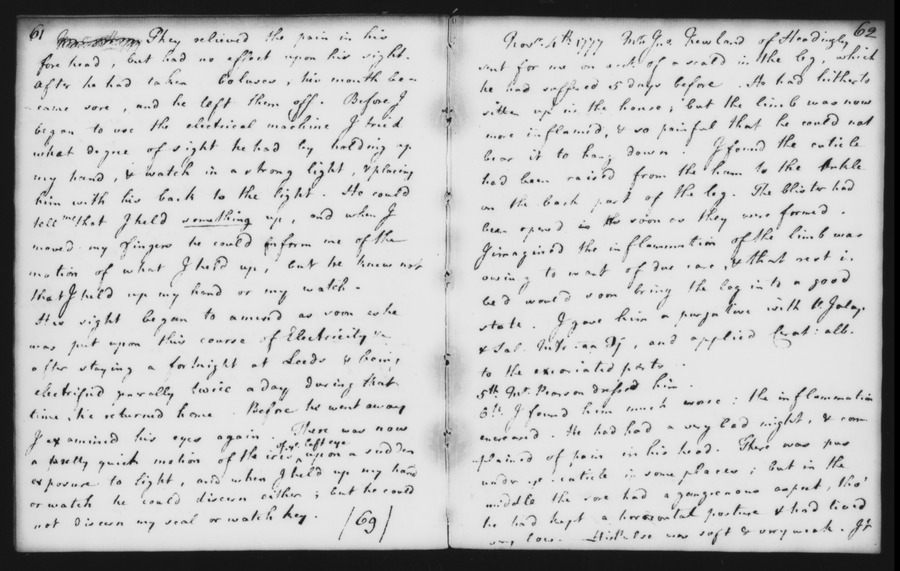 61
They relieved the pain in his
fore head, but had no effect upon his sight.
After he had taken Boluses, his mouth be=
=came sore, and he left them off. Before I
began to use the electrical machine I tried
what degree of sight he had by holding up
my hand, & watch in a strong light, & placing
him with his back to the light. He could
tell me that I held something up, and when I
moved my fingers he could inform me of the
motion of what I held up, but he knew not
that I held up my hand or my watch.
His sight began to amend as soon as he
was put upon this course of Electricity &
after staying a fortnight at Leeds & being
electrified generally twice a day during that
time, he returned home. Before he went away
I examined his eyes again. There was now
a pretty quick motion of the iris of ye left eye upon a sudden
exposure to light, and when I held up my hand
or watch he could discern either; but he could
not discern my seal or watch key.
(69)
62
Novr. 4th 1777 Mr. Jno. Newland of Headingley
sent for me on acct. of a scald in the leg, which
he had suffered 5 days before. He had hitherto
sitten up in the house; but the limb was now
more inflamed, & so painful that he could not
bear it to hang down. I found the cuticle
had been raised from the ham to the Ankle
on the back part of the leg. The Blister had
been opened as soon as they were formed.
I imagined the inflammation of the limb was
owing to want of due care, & that rest in
bed would soon bring the leg into a good
state. I gave him a purgative with Jalap
& Sal. and applied Cerat: alb.
to the excoriated parts.
5th Mr. Pearson dressed him.
6th. I found him much worse: the inflammation
encreased. He had had a very bad night, & com
=plained of pain in his head. There was pus
under ye cuticle in some places, but in the
middle the sore had a gangrenous aspect, tho'
he had kept a horizontal posture & had lived
very low. His Pulse was soft & very weak. It